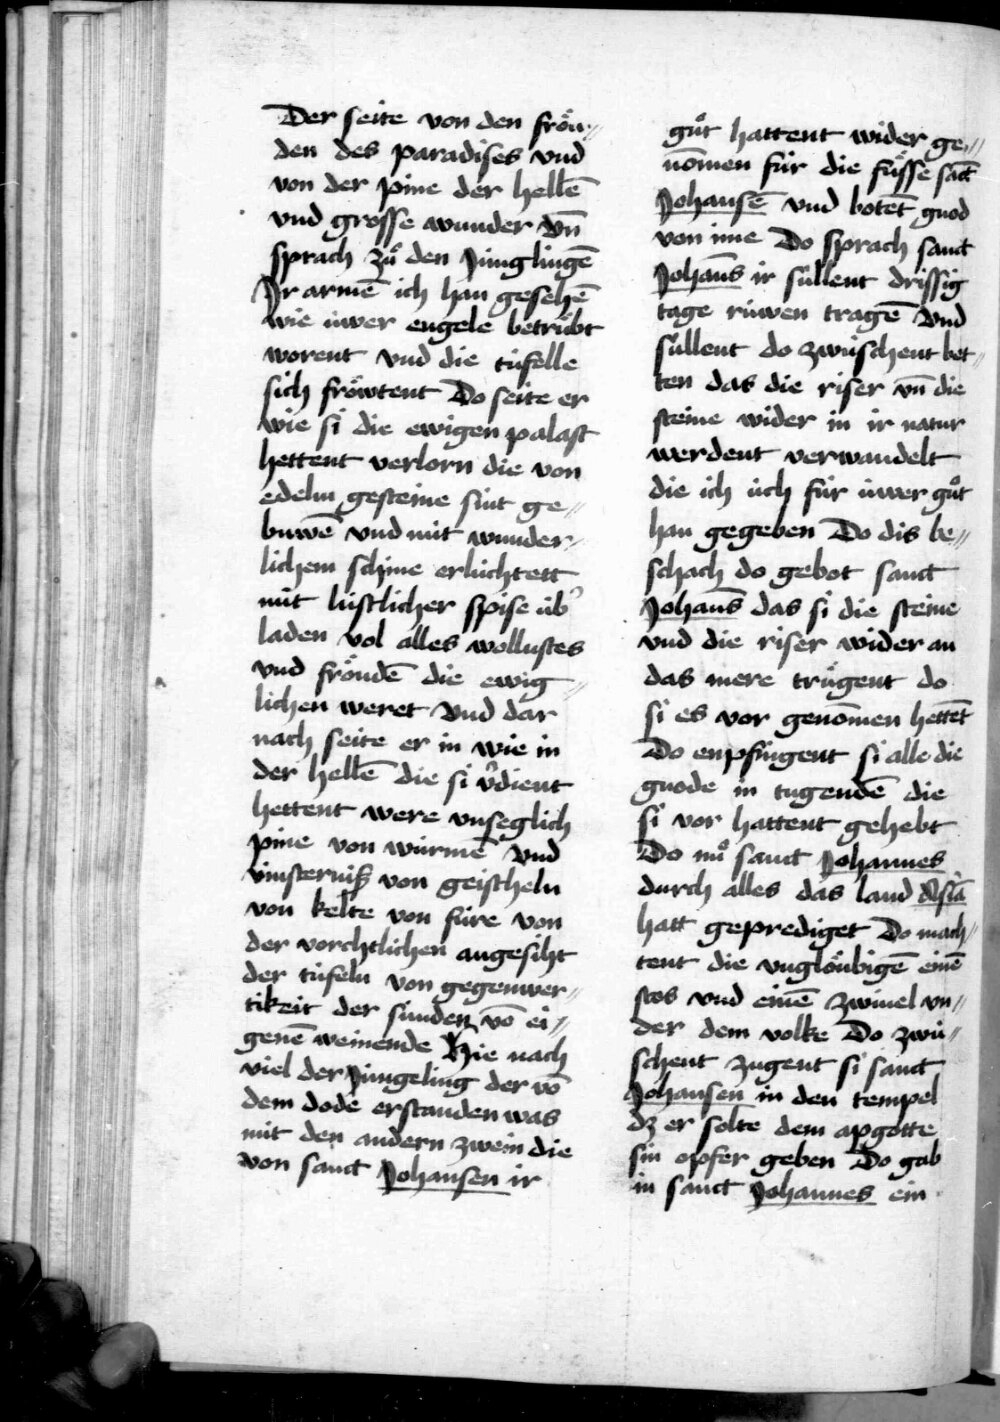 Der seite von den froͤu⸗
den des paradises vnd
von der pine der hellē
vnd grosse wunder vn̄
sprach zuͦ den Junglingē
Ir armē ich han gesehē
wie uwer engele betruͤbt
worent vnd die tufelle
sich froͤwtent Do seite er
wie si die ewigen palast
hettent verlorn die von
edelm gesteine sint ge⸗
buwē vnd mit wunder⸗
lichem schine erluchtett
mit lustlicher spise ub̾
laden vol alles wollustes
vnd froͤudē die ewig⸗
lichen weret Vnd dar
nach seite er in wie in
der hellē die si v̾dient
hettent were vnseglich
pine von wurmē Vnd
vinsternisz von geischeln
von kelte von fure von
der vorchtlichen angesiht
der tufeln von gegenwer⸗
tikeit der sunden vō ei⸗
genē weinende Hie nach
viel der Jungeling der vō
dem dode erstanden was
mit den andern zwein die
von sanct Johansen ir
guͦt hattent wider ge⸗
nōmen fur die fuͤsse sāct
Johansē vnd botēt gnod
von ime Do sprach sanct
Johans ir sullent drissig
tage ruwen tragē Vnd
sullent do zwuschent bet⸗
ten das die riser vn̄ die
steine wider in ir natur
werdent verwandelt
die ich uch fur uwer guͦt
han gegeben Do dis be⸗
schach do gebot sanct
Johans das si die steine
vnd die riser wider an
das mere truͤgent do
si es vor genōmen hettēt
Do enpfingent si alle die
gnode in tugendē die
si vor hattent gehebt
Do nuͦ sanct Johannes
durch alles das land Asiā
hatt geprediget Do mach⸗
tent die vngloͤubigē einē
stos vnd einē zwiuel vn⸗
der dem volke Do zwu⸗
schent zugent si sanct
Johansen in den tempel
dz er solte dem apgotte
sin opfer geben Do gab
in sanct Johannes ein